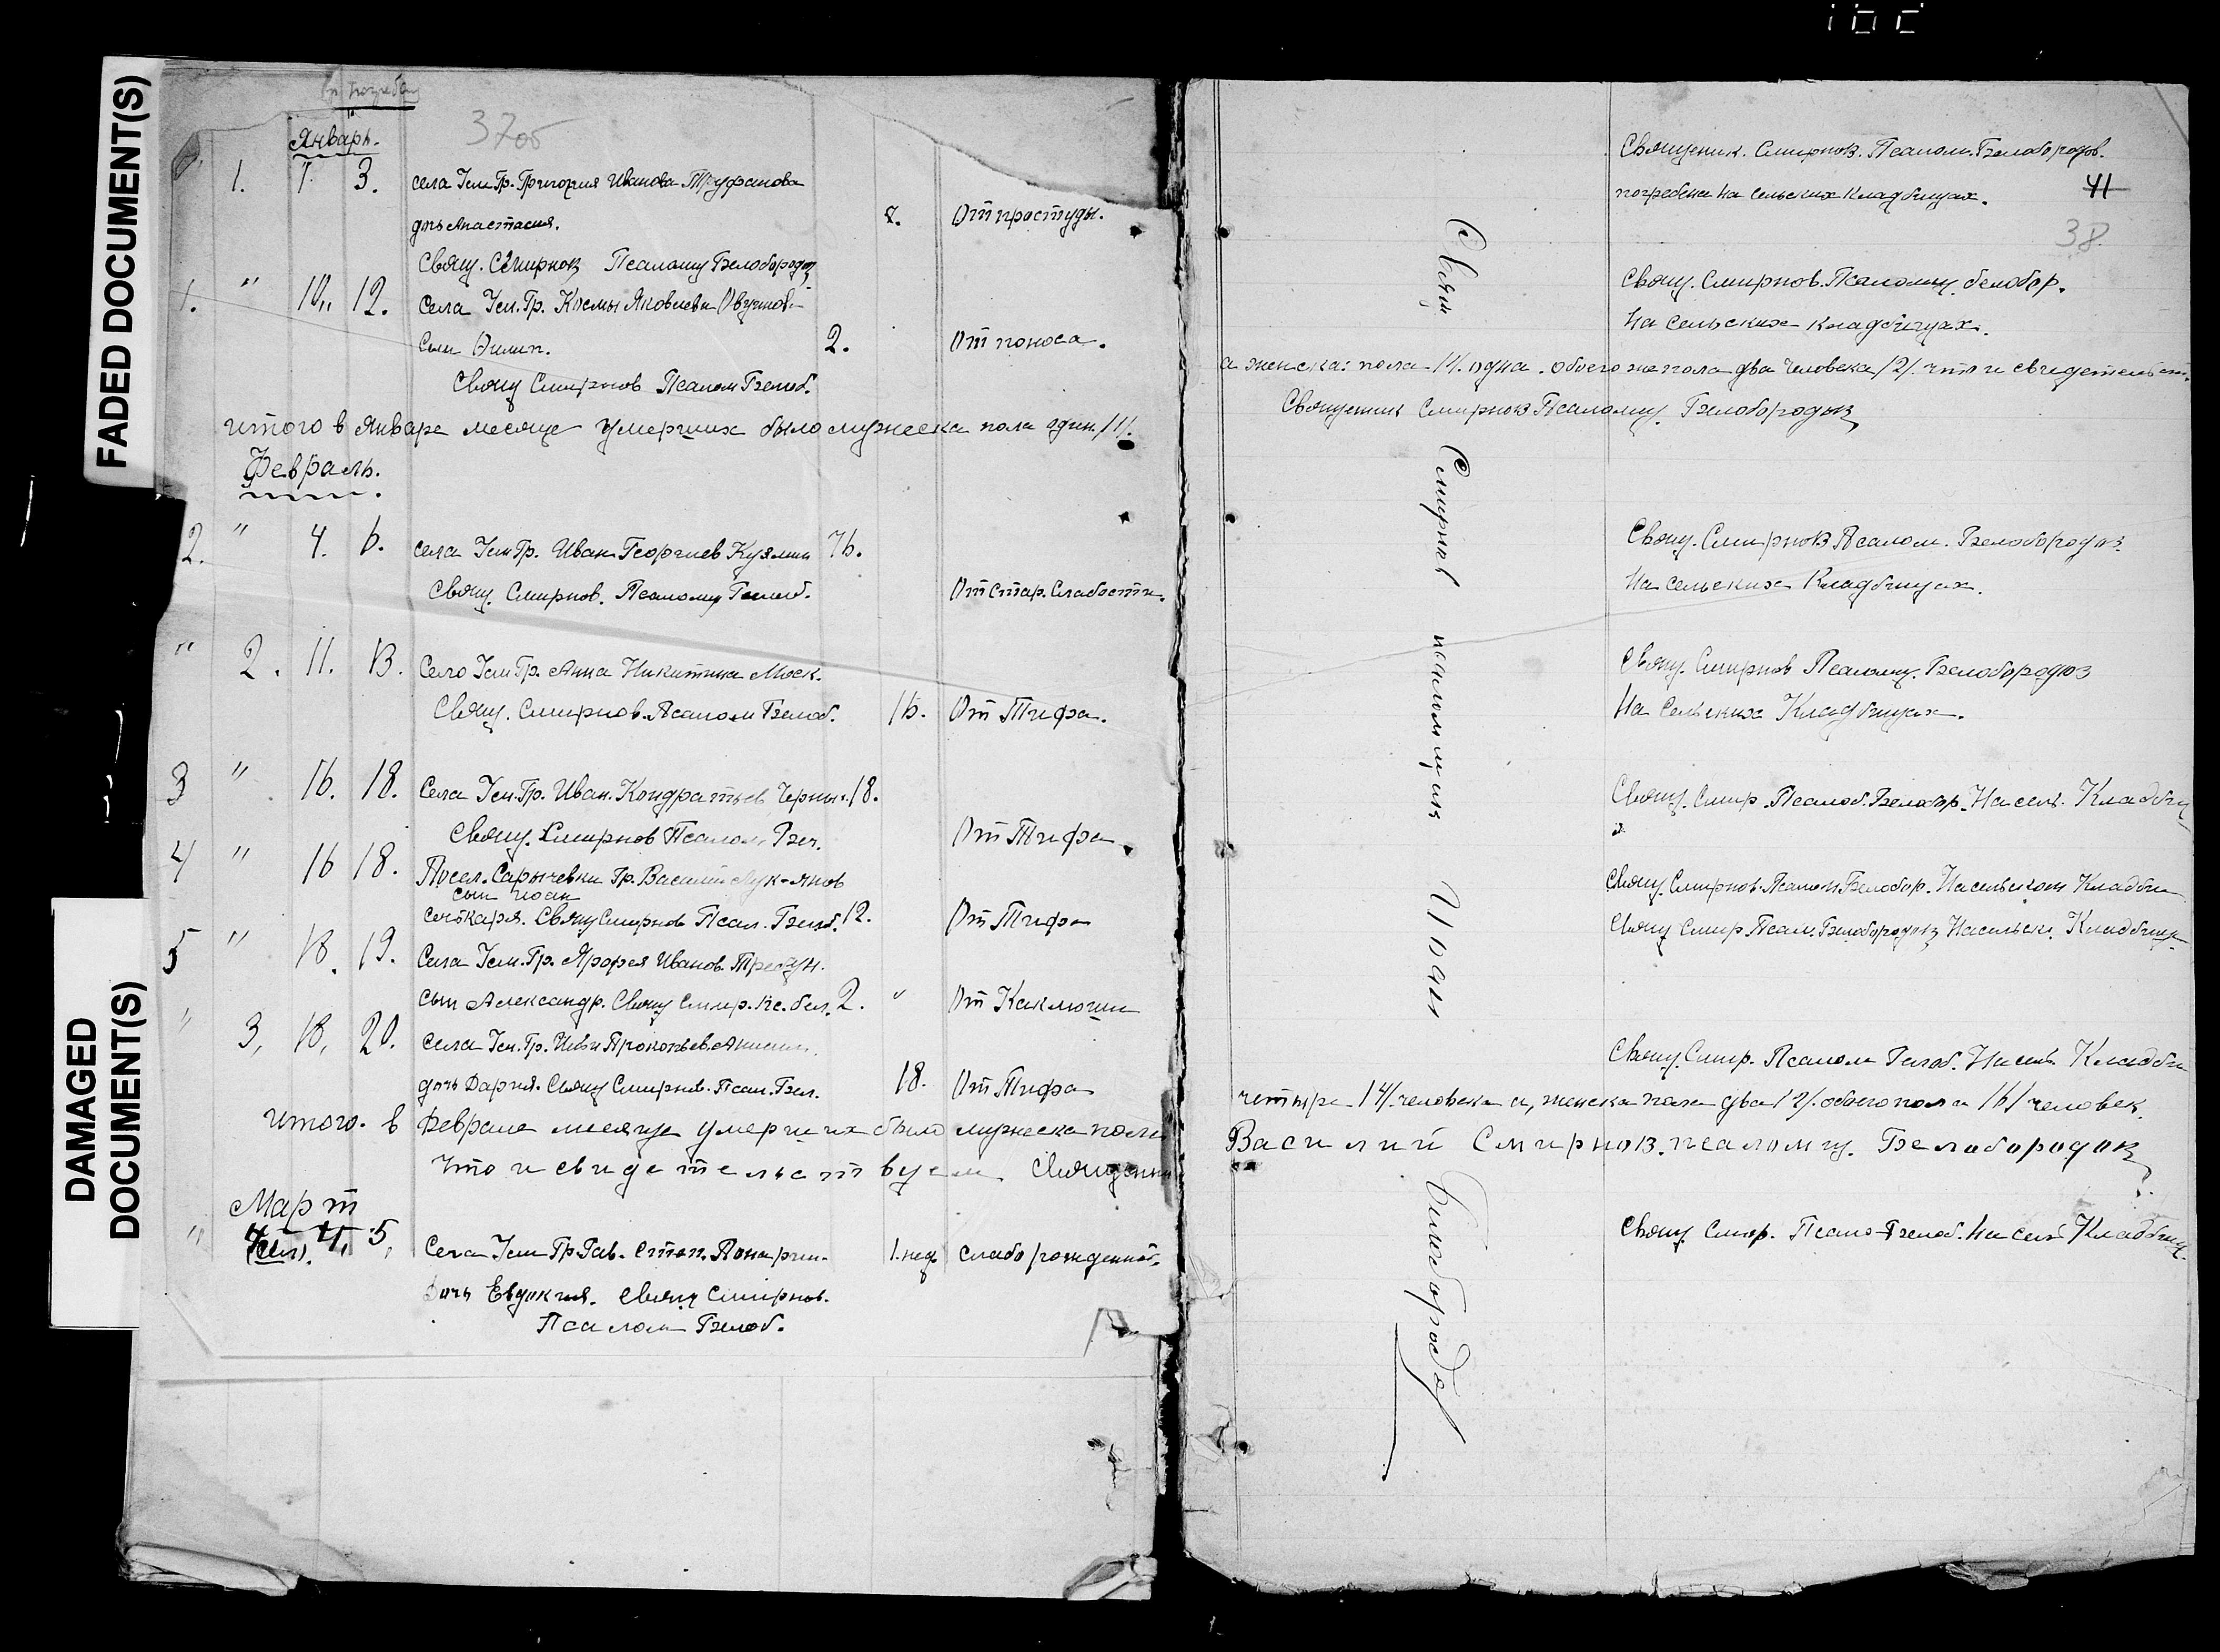 FADED DOCUMENT(S)
DAMAGED
DOCUMENT(S)
37об
Январь.
" 1. 1. 3. села Усм Гр. Григория Иванова Труфанова
дочь Анастасия. 8. От простуды.
Свящ. Смирнов Псаломщ Белобородов
1. " 10. 12. Села Усм. Гр. Космы Яковлева
Сын Филип. 2. От поноса.
Свящ Смирнов Псалом Белоб.
итого в Январе месяце умерших было мужеска пола один /1/.
Февраль.
2. " 4. 6. села Усм Гр. Иван Георгиев Кузмин 76.
Свящ. Смирнов. Псаломщ Белоб. От стар. Слабости.
" 2. 11. 13. Село Усм Гр. Анна Никитина Моск.
Свящ. Смирнов. Псалом Белоб. 16. От Тифа.
3 " 16. 18. Села Усм. Гр. Иван. Кондратьев Черны. 18.
Свящ. Смирнов Псалом. От Тифа.
4 " 16 18. Посел. Сарычевки Гр. Василий Лук-янов
сын Иоан
Свящ Смирнов Псал. Белоб. 12. От Тифа
5 " 18. 19. Села Усм. Гр. Ярофея Иванов. Трегуж.
сын Александр. Свящ Смир. Пс. бел. 2. " От Каклюши
" 3, 18, 20. села Усм. Гр. Прокопьев.
дочь Дария. Свящ Смирнов. Псал. Бел. 18. От Тифа
итого. в феврале месяце умерших было мужеска пола
что и свидетельствуем Священни
Март
" 4. 5, Села Усм Гр Гав. Степ. 1. нед слабо рожденной.
Дочь Евдокия. Свящ Смирнов.
Псалом Белоб.
Священик. Смирнов. Псалом. Белобородов.
погребена на сельских кладбищах. 41
38
Свящ. Смирнов. Псаломщ. белобор.
На сельских кладбищах.
а женска: пола /1/. одна. обоего же пола два человека /2/. что и свидетельст.
Священик Смирнов Псаломщ. Белобородов
Свящ. Смирнов Псалом. Белобородов.
На сельских Кладбищах.
Свящ. Смирнов Псаломщ. Белобородов
На Сельских Кладбищах.
Свящ. Смир. Псалоб. Белобор. На сел. Кладбищ
Свящ. Смирнов. Псалом Белобор. На сельском Кладби
Свящ Смир Псал. Белобородов На сельск. Кладбищ
Свящ. Смир. Псалом Белоб. На сель. Кладби
четыре /4/. человека а, женска пола два /2/. обоего пола /6/ человек.
Василий Смирнов. псаломщ. Белобородов
Свящ. Смир. Псало Белоб. На сел Кладбищ.
Свящ Смирнов псаломщик Иоан Белобородов